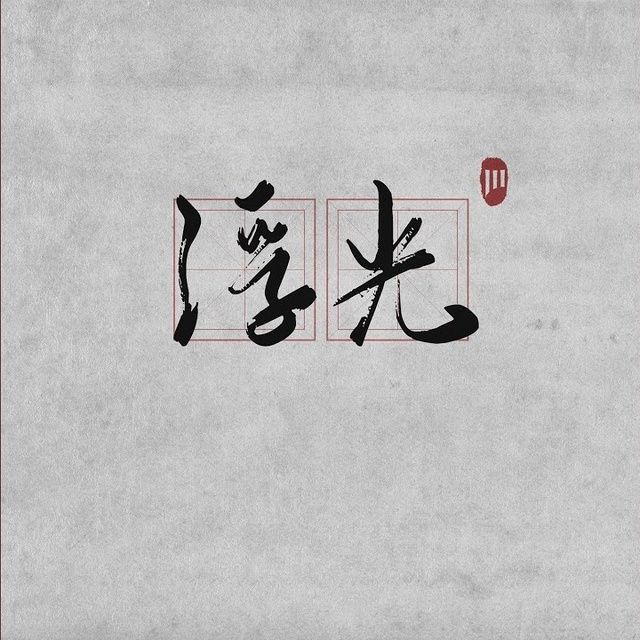 浮光
川